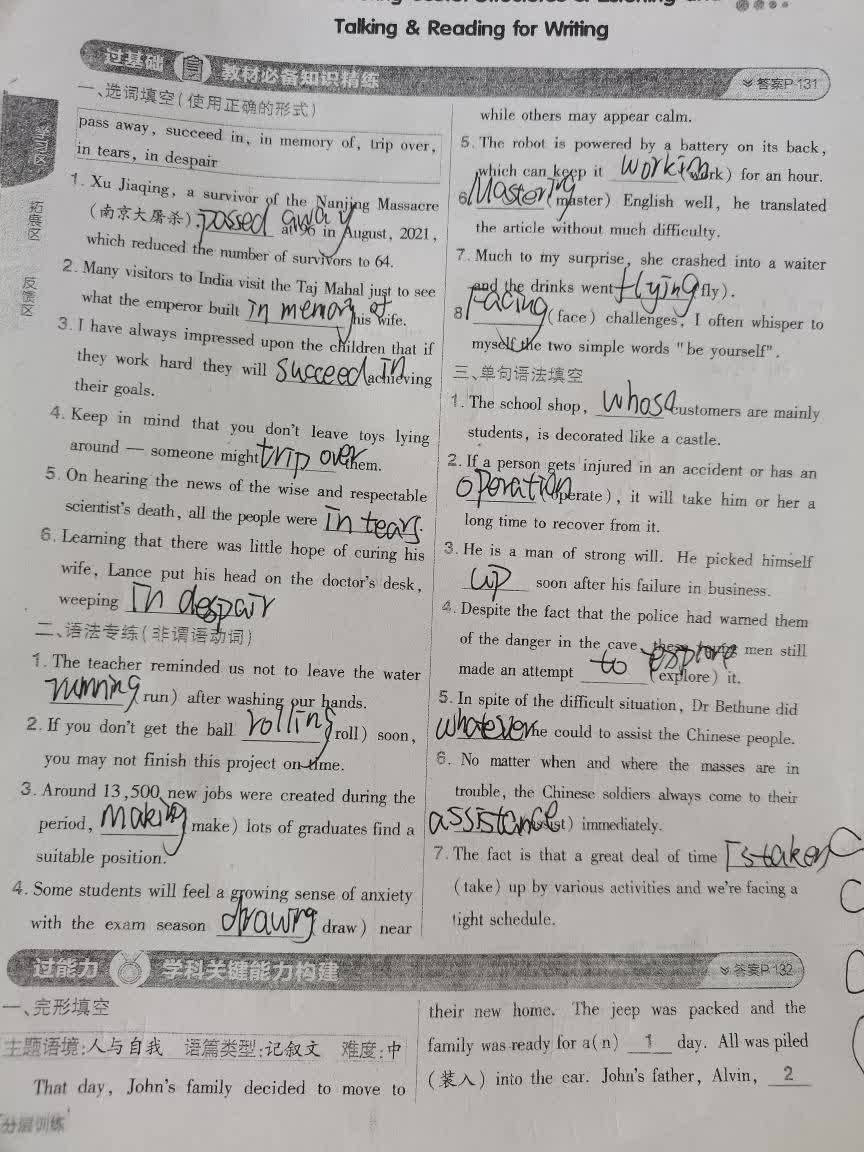 Talking & Reading for Writing
过基础 教材必备知识精练
答案P 131
学习区
拓展区
反馈区
一、选词填空(使用正确的形式)
pass away, succeed in, in memory of, trip over,
in tears, in despair
1. Xu Jiaqing, a survivor of the Nanjing Massacre
(南京大屠杀), passed away at 96 in August, 2021,
which reduced the number of survivors to 64.
2. Many visitors to India visit the Taj Mahal just to see
what the emperor built in memory of his wife.
3. I have always impressed upon the children that if
they work hard they will succeed in achieving
their goals.
4. Keep in mind that you don't leave toys lying
around — someone might trip over them.
5. On hearing the news of the wise and respectable
scientist's death, all the people were in tears.
6. Learning that there was little hope of curing his
wife, Lance put his head on the doctor's desk,
weeping in despair
二、语法专练(非谓语动词)
1. The teacher reminded us not to leave the water
running (run) after washing our hands.
2. If you don't get the ball rolling (roll) soon,
you may not finish this project on time.
3. Around 13,500 new jobs were created during the
period, making (make) lots of graduates find a
suitable position.
4. Some students will feel a growing sense of anxiety
with the exam season drawing (draw) near
while others may appear calm.
5. The robot is powered by a battery on its back,
which can keep it working (work) for an hour.
6. Mastering (master) English well, he translated
the article without much difficulty.
7. Much to my surprise, she crashed into a waiter
and the drinks went flying (fly).
8. Facing (face) challenges, I often whisper to
myself the two simple words "be yourself".
三、单句语法填空
1. The school shop, whose customers are mainly
students, is decorated like a castle.
2. If a person gets injured in an accident or has an
operation (operate), it will take him or her a
long time to recover from it.
3. He is a man of strong will. He picked himself
up soon after his failure in business.
4. Despite the fact that the police had warned them
of the danger in the cave, these men still
made an attempt to explore (explore) it.
5. In spite of the difficult situation, Dr Bethune did
whatever he could to assist the Chinese people.
6. No matter when and where the masses are in
trouble, the Chinese soldiers always come to their
assistance (assist) immediately.
7. The fact is that a great deal of time is taken
(take) up by various activities and we're facing a
tight schedule.
过能力 学科关键能力构建
答案P 132
一、完形填空
主题语境:人与自我 语篇类型:记叙文 难度:中
That day, John's family decided to move to
their new home. The jeep was packed and the
family was ready for a(n) 1 day. All was piled
(装入) into the car. John's father, Alvin, 2
分层训练